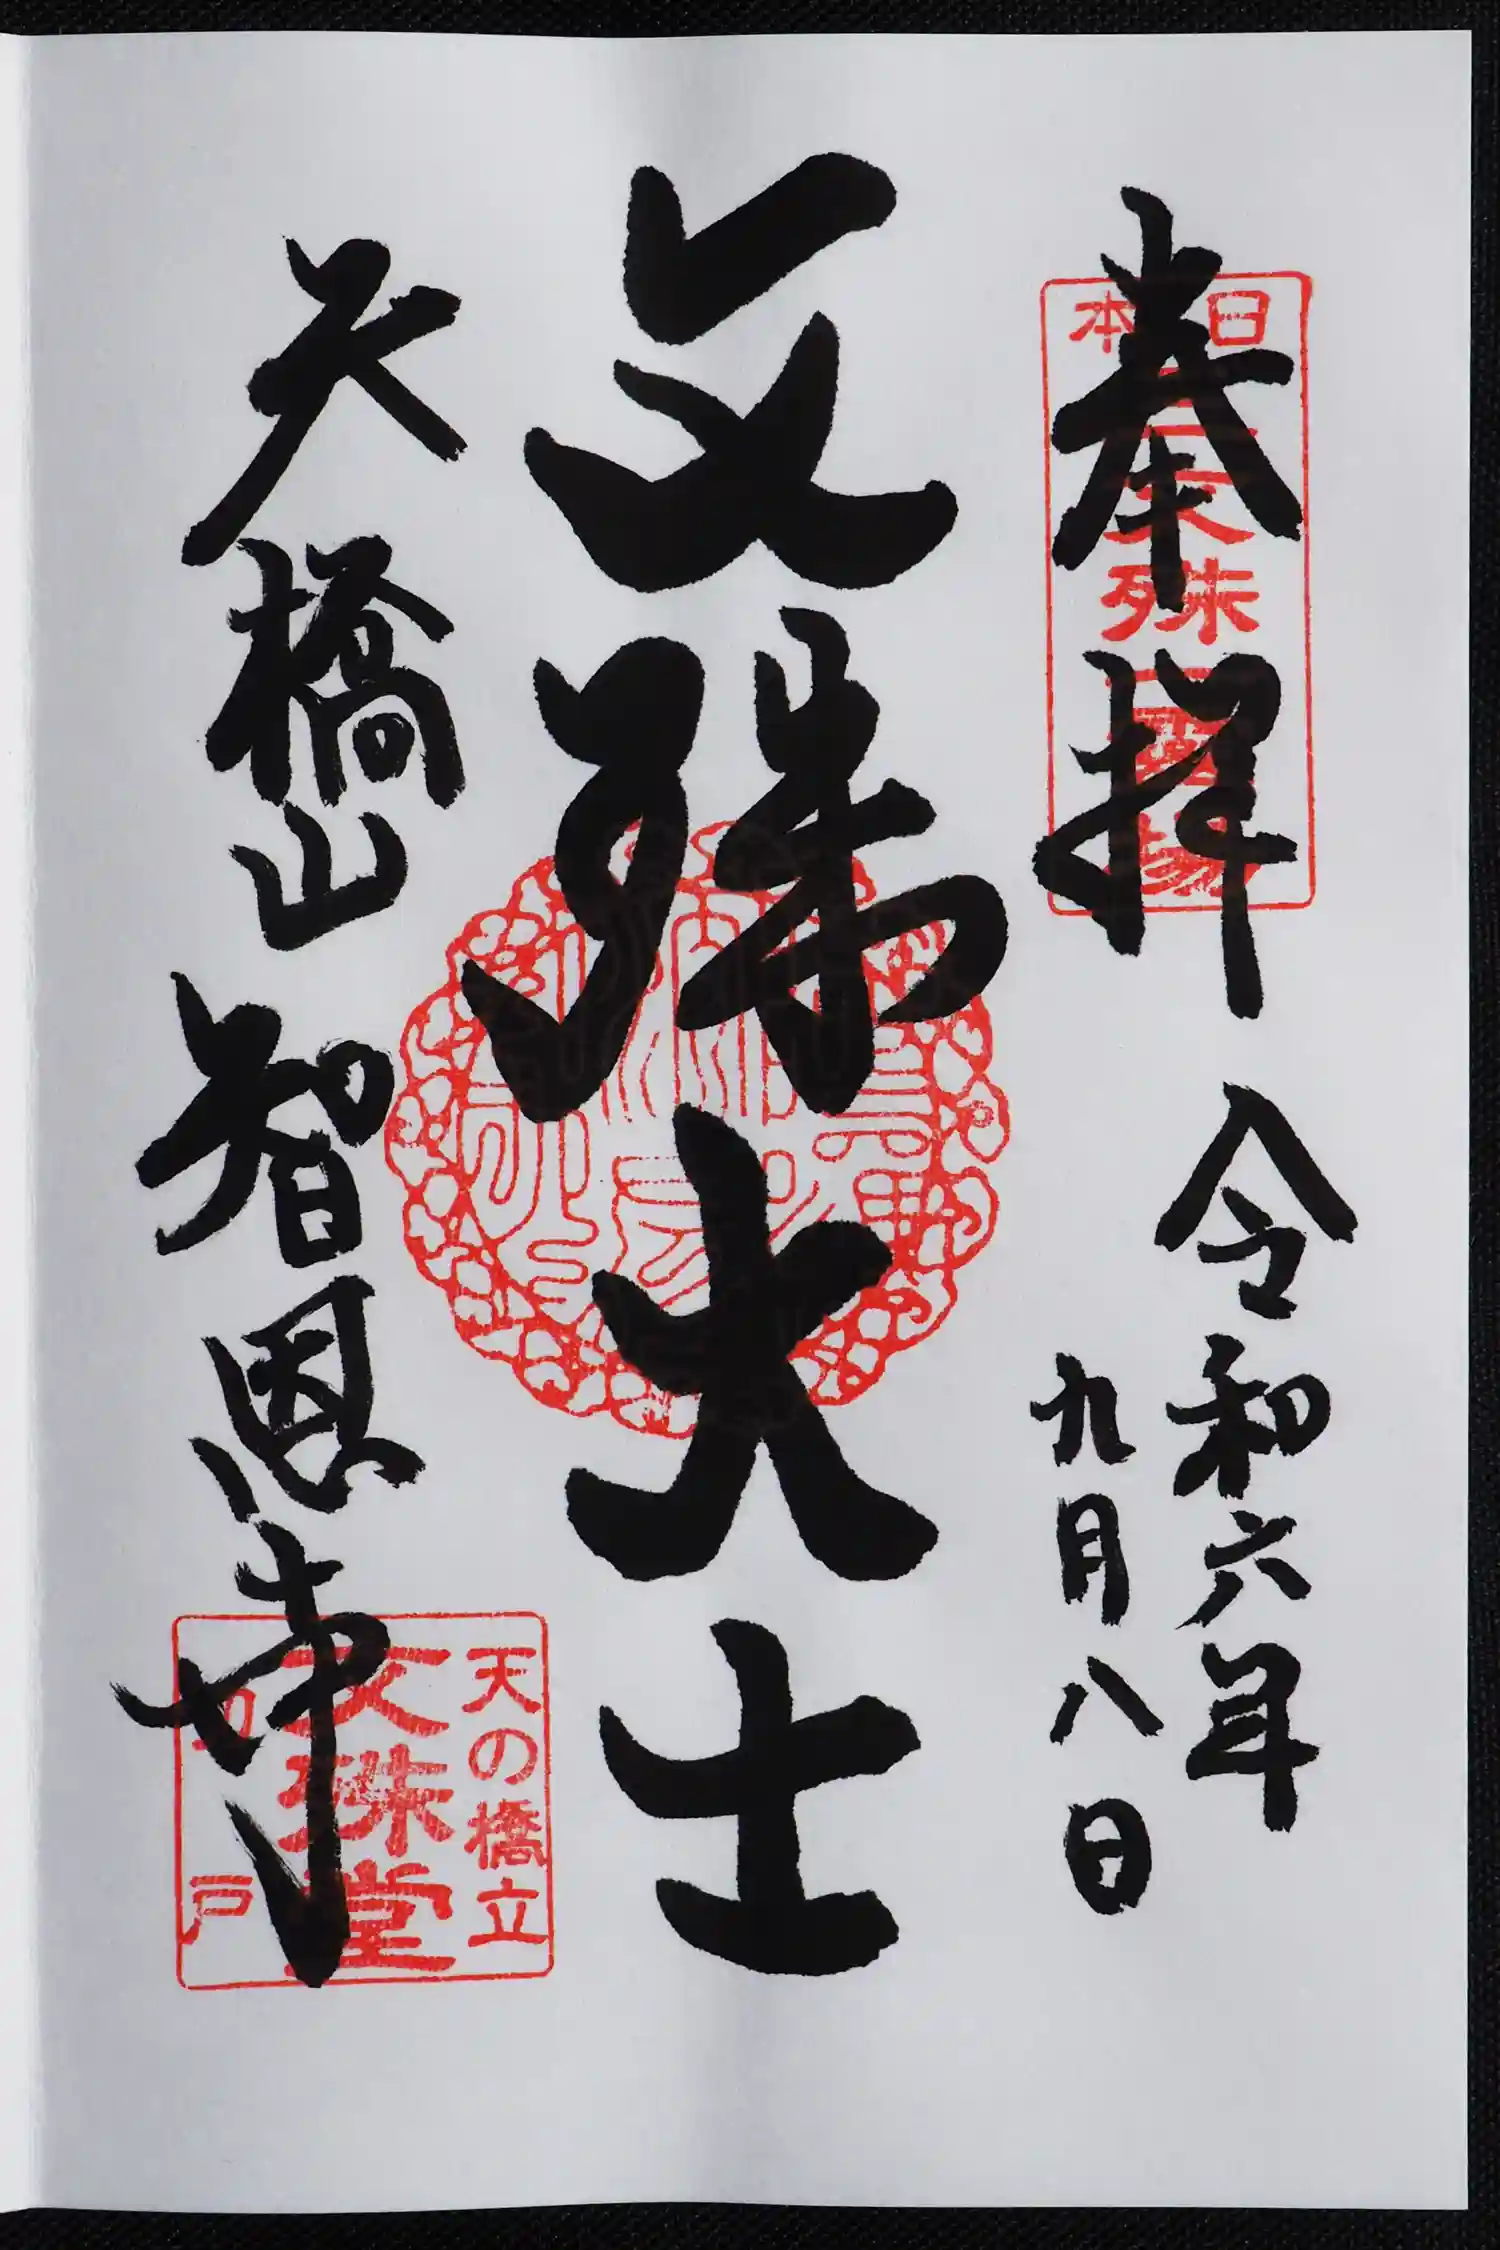 奉拝
日本三文殊一霊場
令和六年
九月八日
文殊大士
天橋山智恩寺
天の橋立
文殊堂
切戸